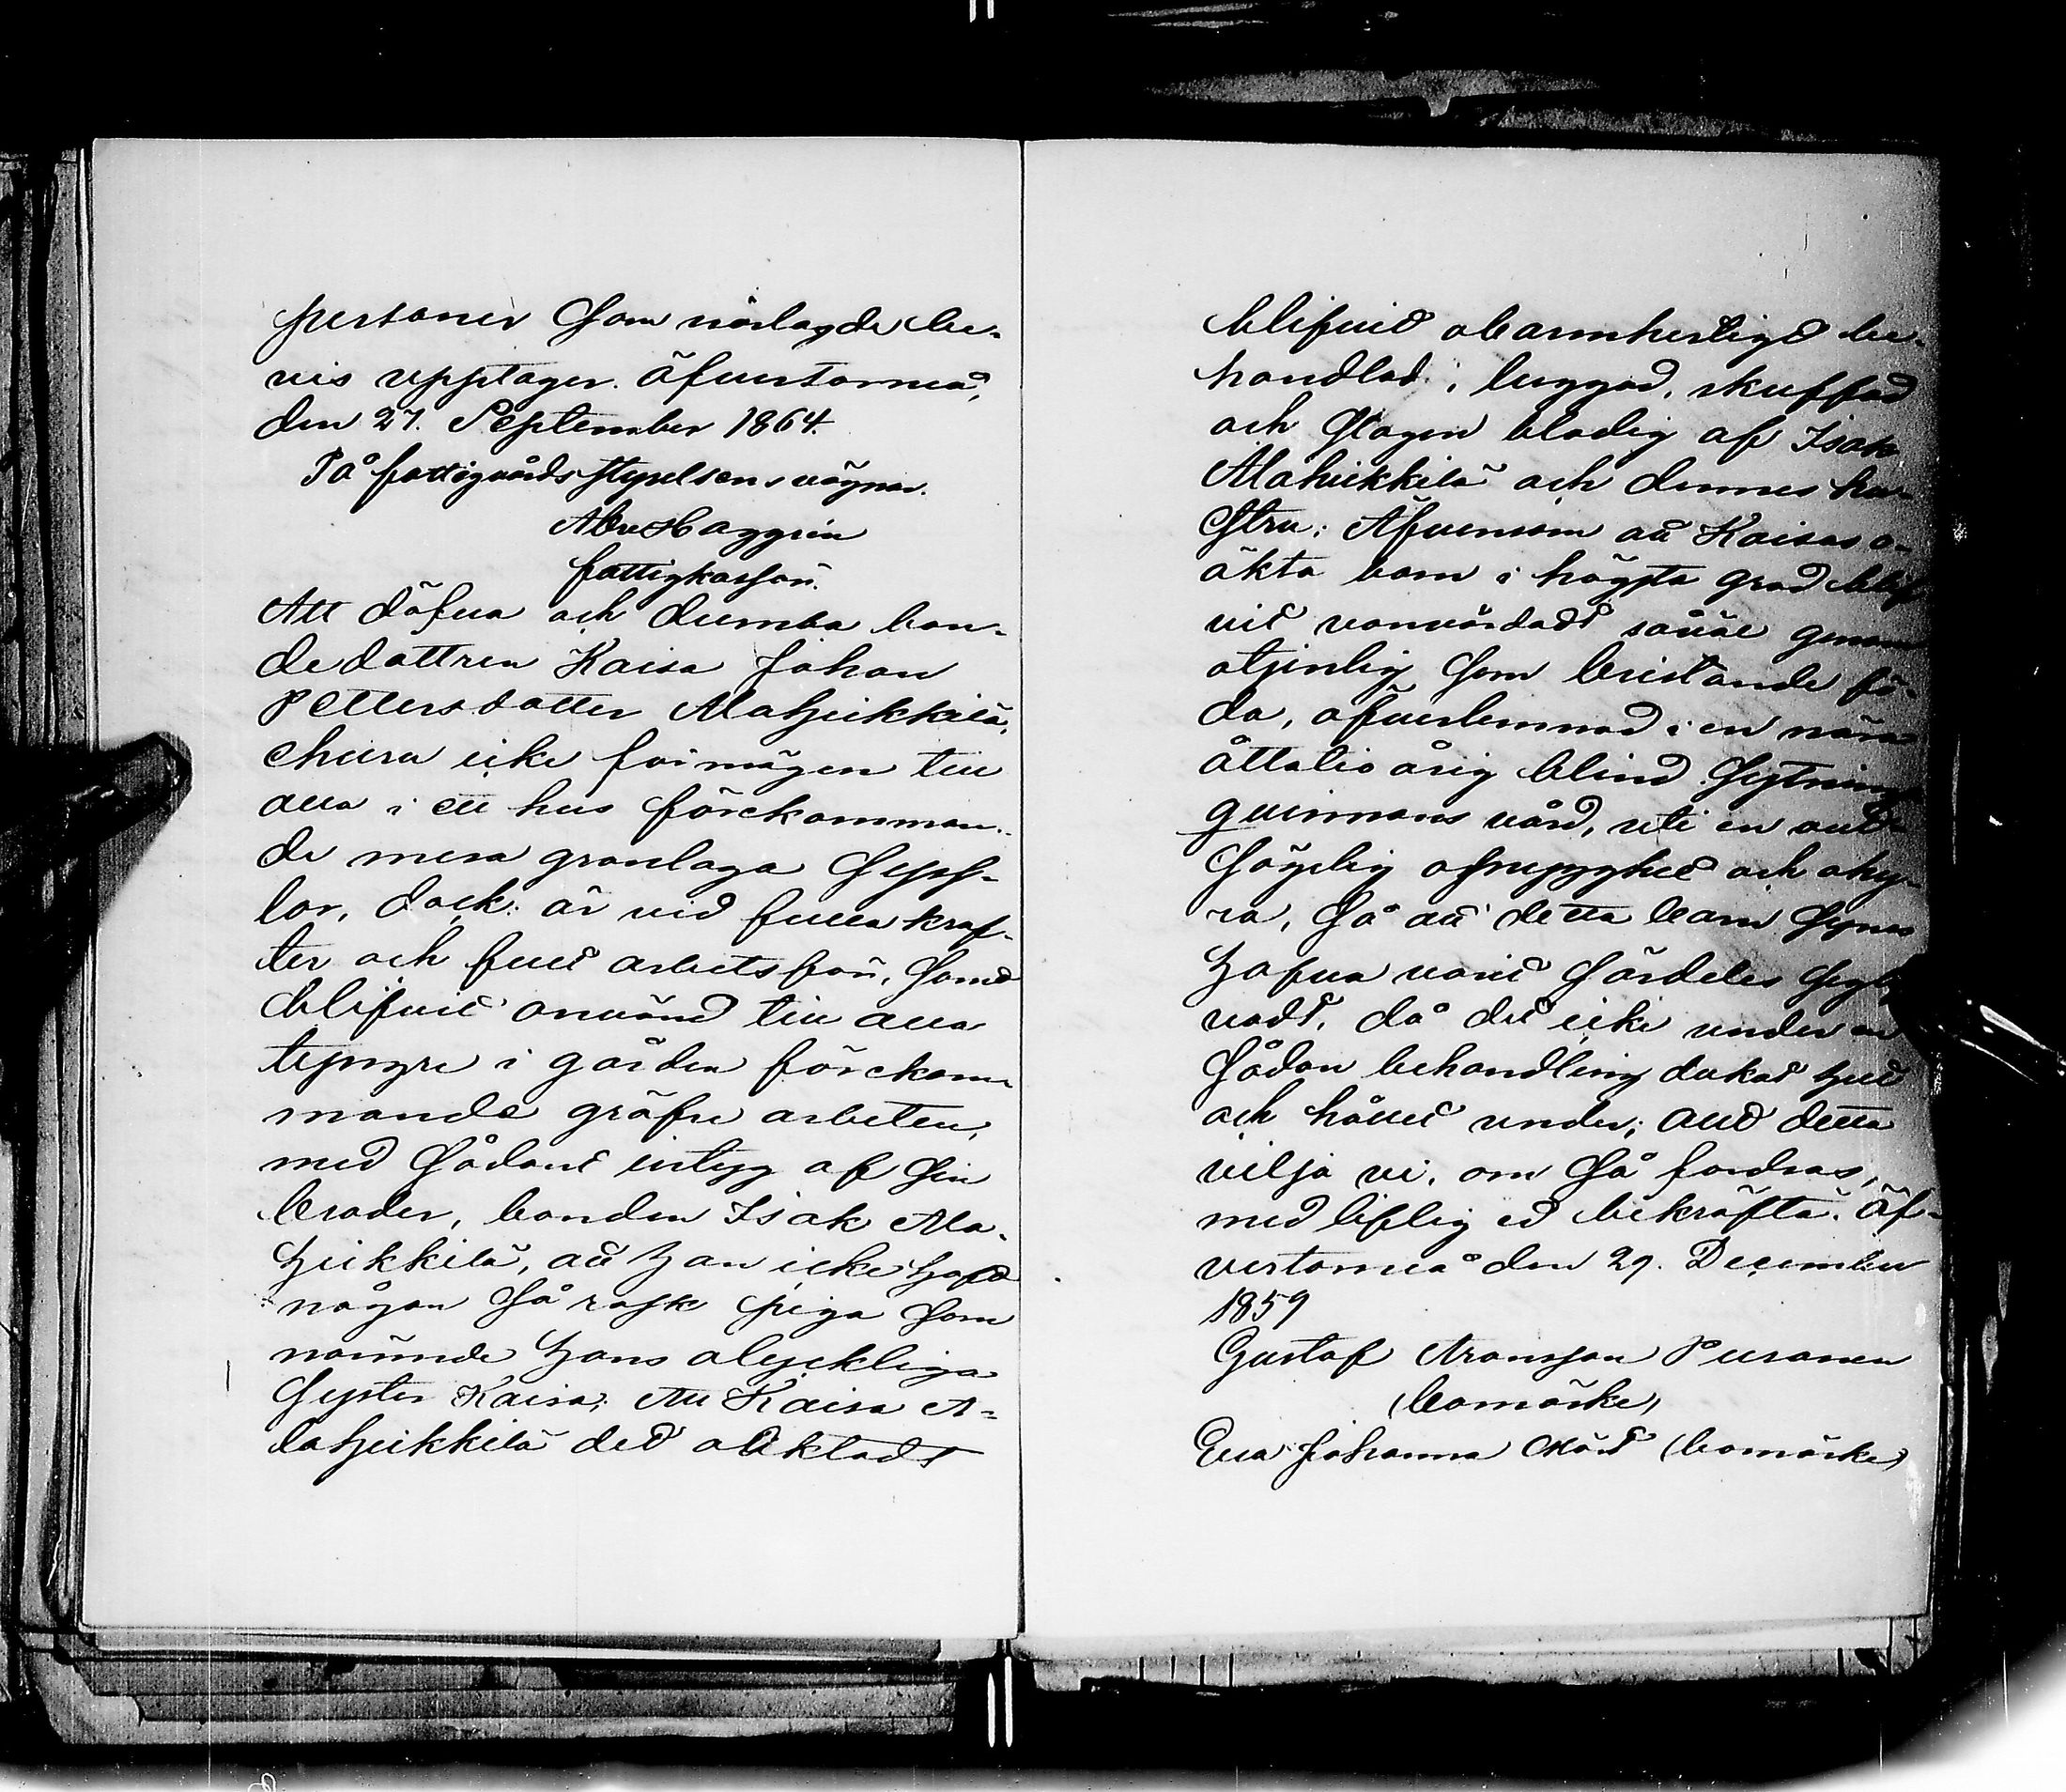 personer som vidlagde be-
vis upptager. Öfvertorneå,
den 27. September 1864.
På fattigvårds styrelsens vägnar.
Alex Haggrén
fattigkassör.
Att döfva och dumba bon-
dedottren Kaisa Johan
Pettersdotter Alaheikkilä,
ehuru icke förmögen till
alla i ett hus förekomman-
de mera granlaga syss-
lor, dock är vid fulla kraf-
ter och full arbetsför, samt
blifvit använd till alla
tyngre i gården förekom-
mande gröfre arbeten,
med sådant intyg af sin
broder, bonden Isak Ala-
heikkilä, att han icke haft
någon så rask piga som
nämnde hans olyckliga
syster Kaisa; Att Kaisa A-
laheikkilä det oaktadt
blifvit obarmhertigt be-
handlad, luggad, skuffad
och slagen blodig af Isak
Alaheikkilä och dennes hu-
stru; Äfvensom att Kaisas o-
äkta barn i högsta grad blif
vit vanvårdadt såväl genom
otjenlig som bristande fö-
da, öfverlemnad i en nära
åttatio årig blind sytnings
qvinnans vård, uti en out-
säglig osnygghet och ohy-
ra, så att detta barn synes
hafva varit särdeles
vadt, då det icke under en
sådan behandling dukat helt
och hållet under; allt detta
vilja vi, om så fordras,
med liflig ed bekräfta. Öf-
vertorneå den 29. December
1859
Gustaf Aronsson Puranen
(bomärke)
Eva Johanna Mört (bomärke)